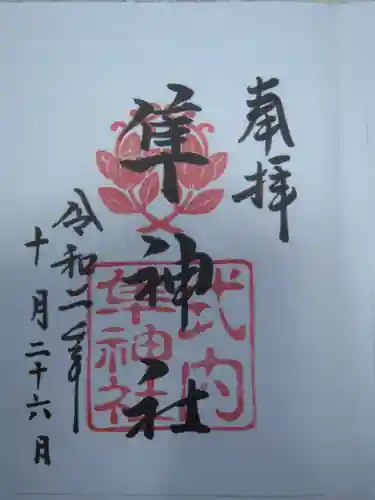 奉拝
隼神社
式内
隼神社
令和二年
十月二十六月